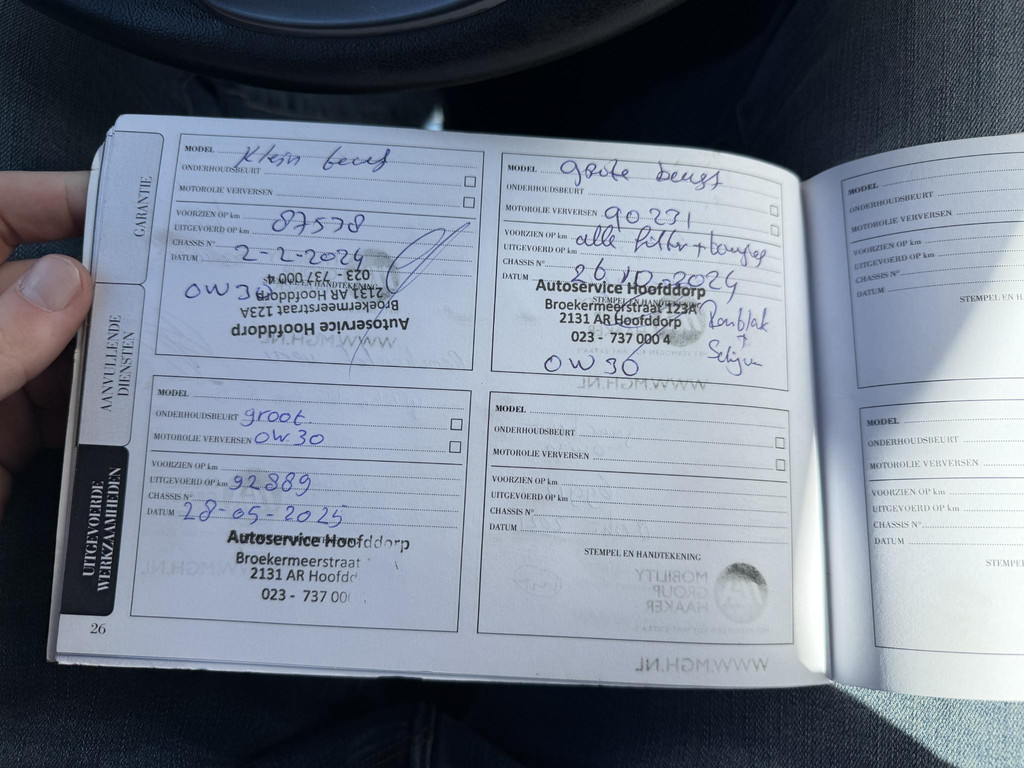 GARANTIE
AANVULLENDE
DIENSTEN
UITGEVOERDE
WERKZAAMHEDEN
MODEL Klein beurt
ONDERHOUDSBEURT
MOTOROLIE VERVERSEN
VOORZIEN OP km
UITGEVOERD OP km 87578
CHASSIS N°
DATUM 2-2-2024
OW30
Autoservice Hoofddorp
Broekermeerstraat 123A
2131 AR Hoofddorp
023 - 737 000 4
MODEL Grote beurt
ONDERHOUDSBEURT
MOTOROLIE VERVERSEN 90231
VOORZIEN OP km
UITGEVOERD OP km alle filter + bougies
CHASSIS N°
DATUM 26-10-2024
Autoservice Hoofddorp
Broekermeerstraat 123A
2131 AR Hoofddorp
023 - 737 000 4
Remblok
+
Schijven
OW30
WWW.MGH.NL
MODEL
ONDERHOUDSBEURT groot
MOTOROLIE VERVERSEN OW30
VOORZIEN OP km
UITGEVOERD OP km 92889
CHASSIS N°
DATUM 28-05-2025
Autoservice Hoofddorp
Broekermeerstraat
2131 AR Hoofdd
023 - 737 00
MODEL
ONDERHOUDSBEURT
MOTOROLIE VERVERSEN
VOORZIEN OP km
UITGEVOERD OP km
CHASSIS N°
DATUM
STEMPEL EN HANDTEKENING
MOBILITY
GROUP
HAAKER
WWW.MGH.NL
26
MODEL
ONDERHOUDSBEURT
MOTOROLIE VERVERSEN
VOORZIEN OP km
UITGEVOERD OP km
CHASSIS N°
DATUM
STEMPEL EN H
MODEL
ONDERHOUDSBEURT
MOTOROLIE VERVERSEN
VOORZIEN OP km
UITGEVOERD OP km
CHASSIS N°
DATUM
STEMPE